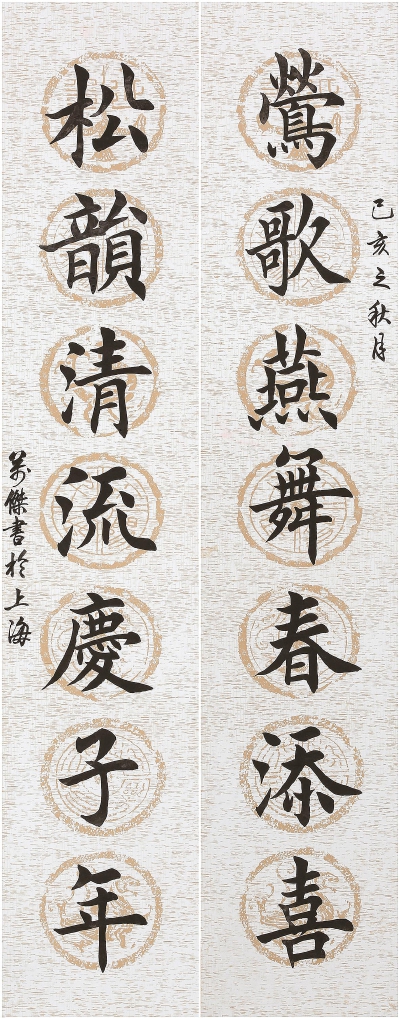 己亥之秋月
鶯歌燕舞春添喜
松韻清流慶子年
萬傑書於上海